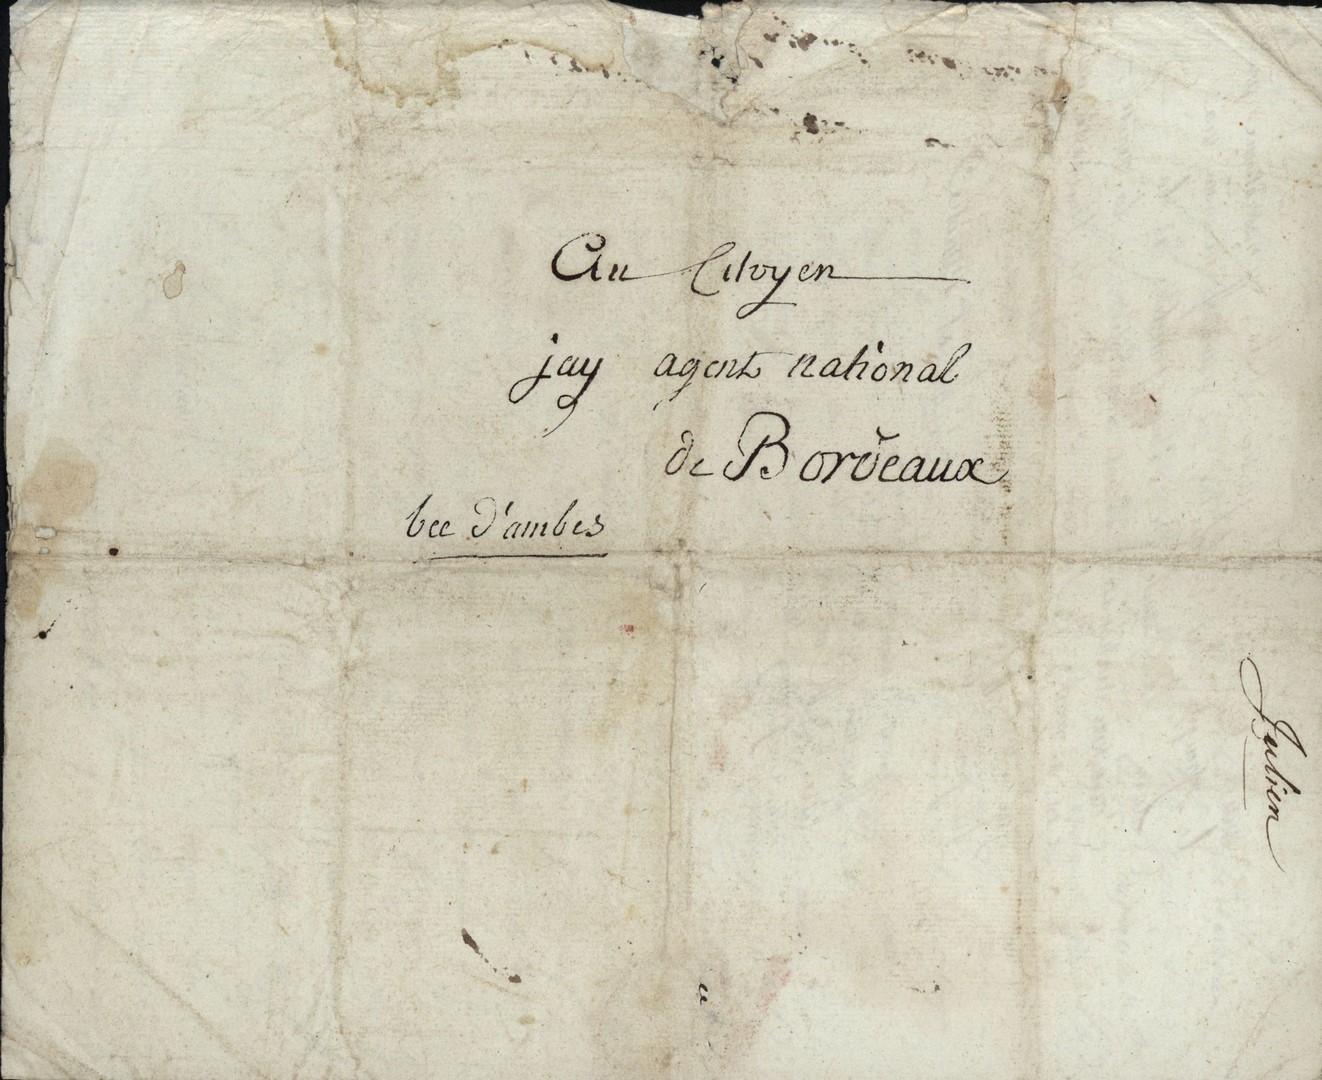 Au Citoyen
jay agent national
de Bordeaux
bec d'ambes
Julien